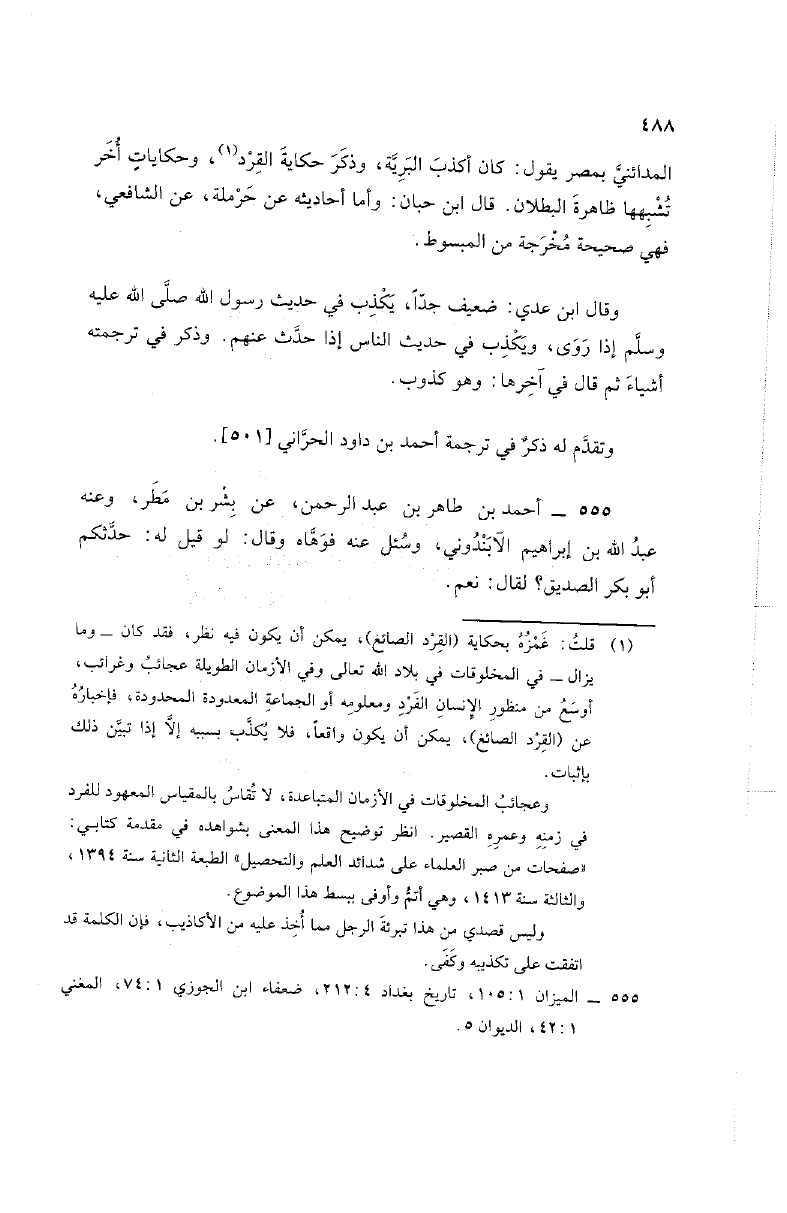 ٤٨٨
المدائنيَّ بمصر يقول: كان أكذبَ البَرِيَّة، وذكَرَ حكايةَ القِرْد(١)، وحكاياتٍ أُخَر
تُشْبِهها ظاهرةَ البطلان. قال ابن حبان: وأما أحاديثه عن حَرْملة، عن الشافعي،
فهي صحيحة مُخْرَجة من المبسوط.
وقال ابن عدي: ضعيف جدّاً، يَكْذِب في حديث رسول الله صلَّى الله عليه
وسلَّم إذا رَوَى، ويَكْذِب في حديث الناس إذا حدَّث عنهم. وذكر في ترجمته
أشياءَ ثم قال في آخِرها: وهو كذوب.
وتقدَّم له ذكرٌ في ترجمة أحمد بن داود الحرَّاني [٥٠١].
٥٥٥ ــ أحمد بن طاهر بن عبد الرحمن، عن بِشْر بن مَطَر، وعنه
عبدُ الله بن إبراهيم الآبَنْدُوني، وسُئل عنه فوَهَّاه وقال: لو قيل له: حدَّثكم
أبو بكر الصديق؟ لقال: نعم.
(١) قلتُ: غَمْزُهُ بحكاية (القِرْد الصائغ)، يمكن أن يكون فيه نظر، فقد كان ــ وما
يزال ــ في المخلوقات في بلاد الله تعالى وفي الأزمان الطويلة عجائبُ وغرائب،
أوسَعُ من منظورِ الإِنسانِ الفَرْدِ ومعلومِهِ أو الجماعةِ المعدودة المحدودة، فإخبارُهُ
عن (القِرْد الصائغ)، يمكن أن يكون واقعاً، فلا يُكذَّب بسببه إلاَّ إذا تبيَّن ذلك
بإثبات.
وعجائبُ المخلوقات في الأزمان المتباعدة، لا تُقاسُ بالمقياس المعهود للفرد
في زمنِهِ وعمرِهِ القصير. انظر توضيح هذا المعنى بشواهده في مقدمة كتابي:
«صفحات من صبر العلماء على شدائد العلم والتحصيل» الطبعة الثانية سنة ١٣٩٤،
والثالثة سنة ١٤١٣، وهي أتمُّ وأوفى ببسط هذا الموضوع.
وليس قصدي من هذا تبرئةَ الرجل مما أُخِذ عليه من الأكاذيب، فإن الكلمة قد
اتفقت على تكذيبه وكَفَى.
٥٥٥ ــ الميزان ١:١٠٥، تاريخ بغداد ٤:٢١٢، ضعفاء ابن الجوزي ١:٧٤، المغني
١:٤٢، الديوان ٥.